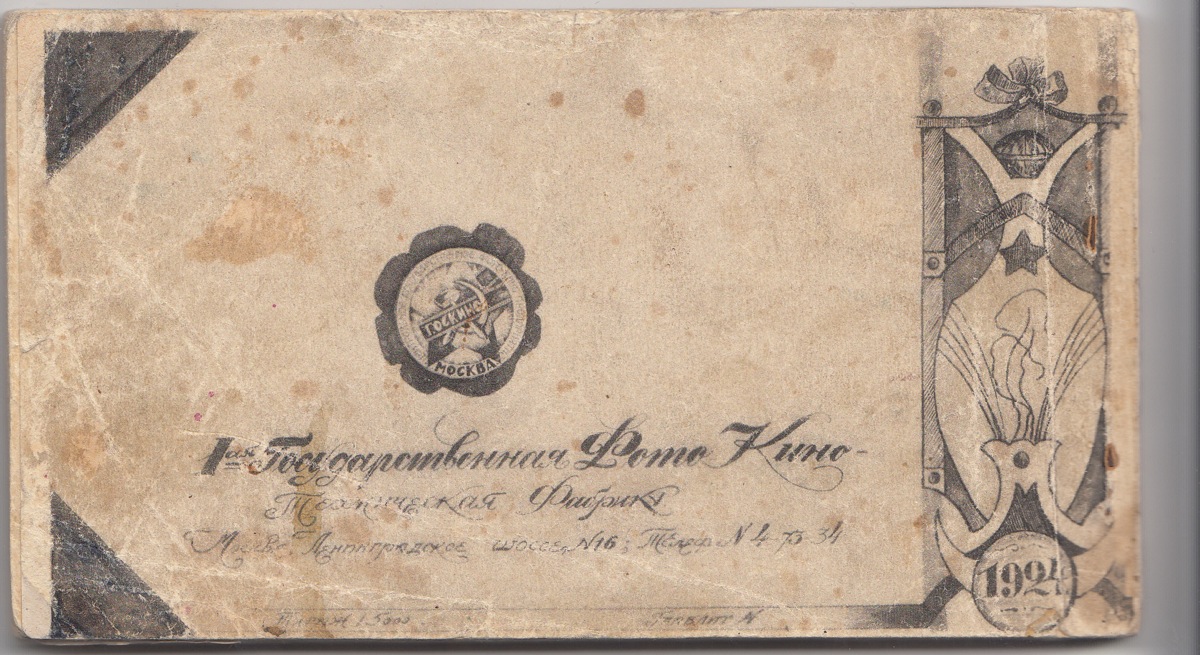 ГОСКИНО
МОСКВА
1ая Государственная Фото Кино-
Техническая Фабрика
Москва Ленинградское шоссе, N16; Телеф N 4-73-34
1924